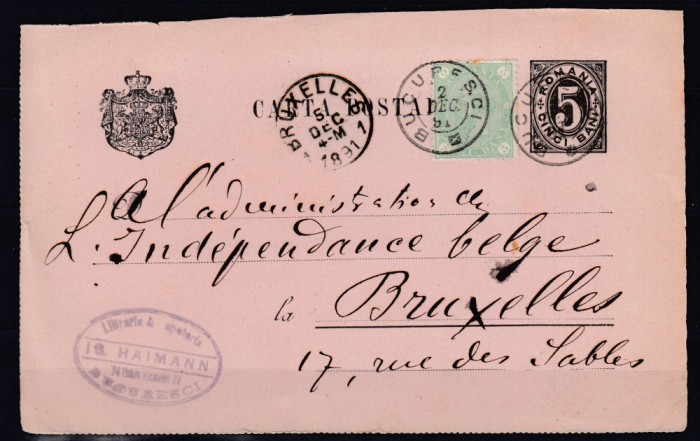 CARTA POSTALA
BRUXELLES 1
5
DEC
4-M
1891
BUCURESCI
2
DEC.
91
BUCU
ROMANIA
5
CINCI BANI
à l'administration de
L'Indépendance belge
la Bruxelles
17, rue des Sables
Librăria &
IG. HAIMANN
BUCURESCI